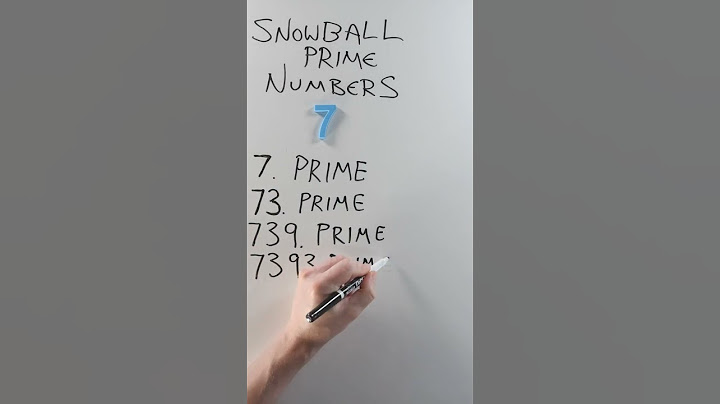 SNOWBALL
PRIME
NUMBERS
7
7. PRIME
73. PRIME
739. PRIME
7393